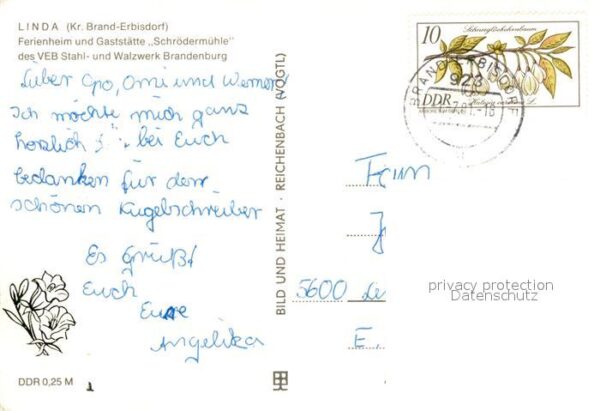 LINDA (Kr. Brand-Erbisdorf)
Ferienheim und Gaststätte „Schrödermühle"
des VEB Stahl- und Walzwerk Brandenburg
Lieber Opa, Omi und Werner
Ich möchte mich ganz
herzlich bei Euch
bedanken für den
schönen Kugelschreiber
Es grüßt
Euch
Eure
Angelika
DDR 0,25 M
BILD UND HEIMAT · REICHENBACH (VOGTL)
10
Schneeglöckchenbaum
DDR
BRAND-ERBISDORF
Frau
J
5600 Le
E.
privacy protection
Datenschutz